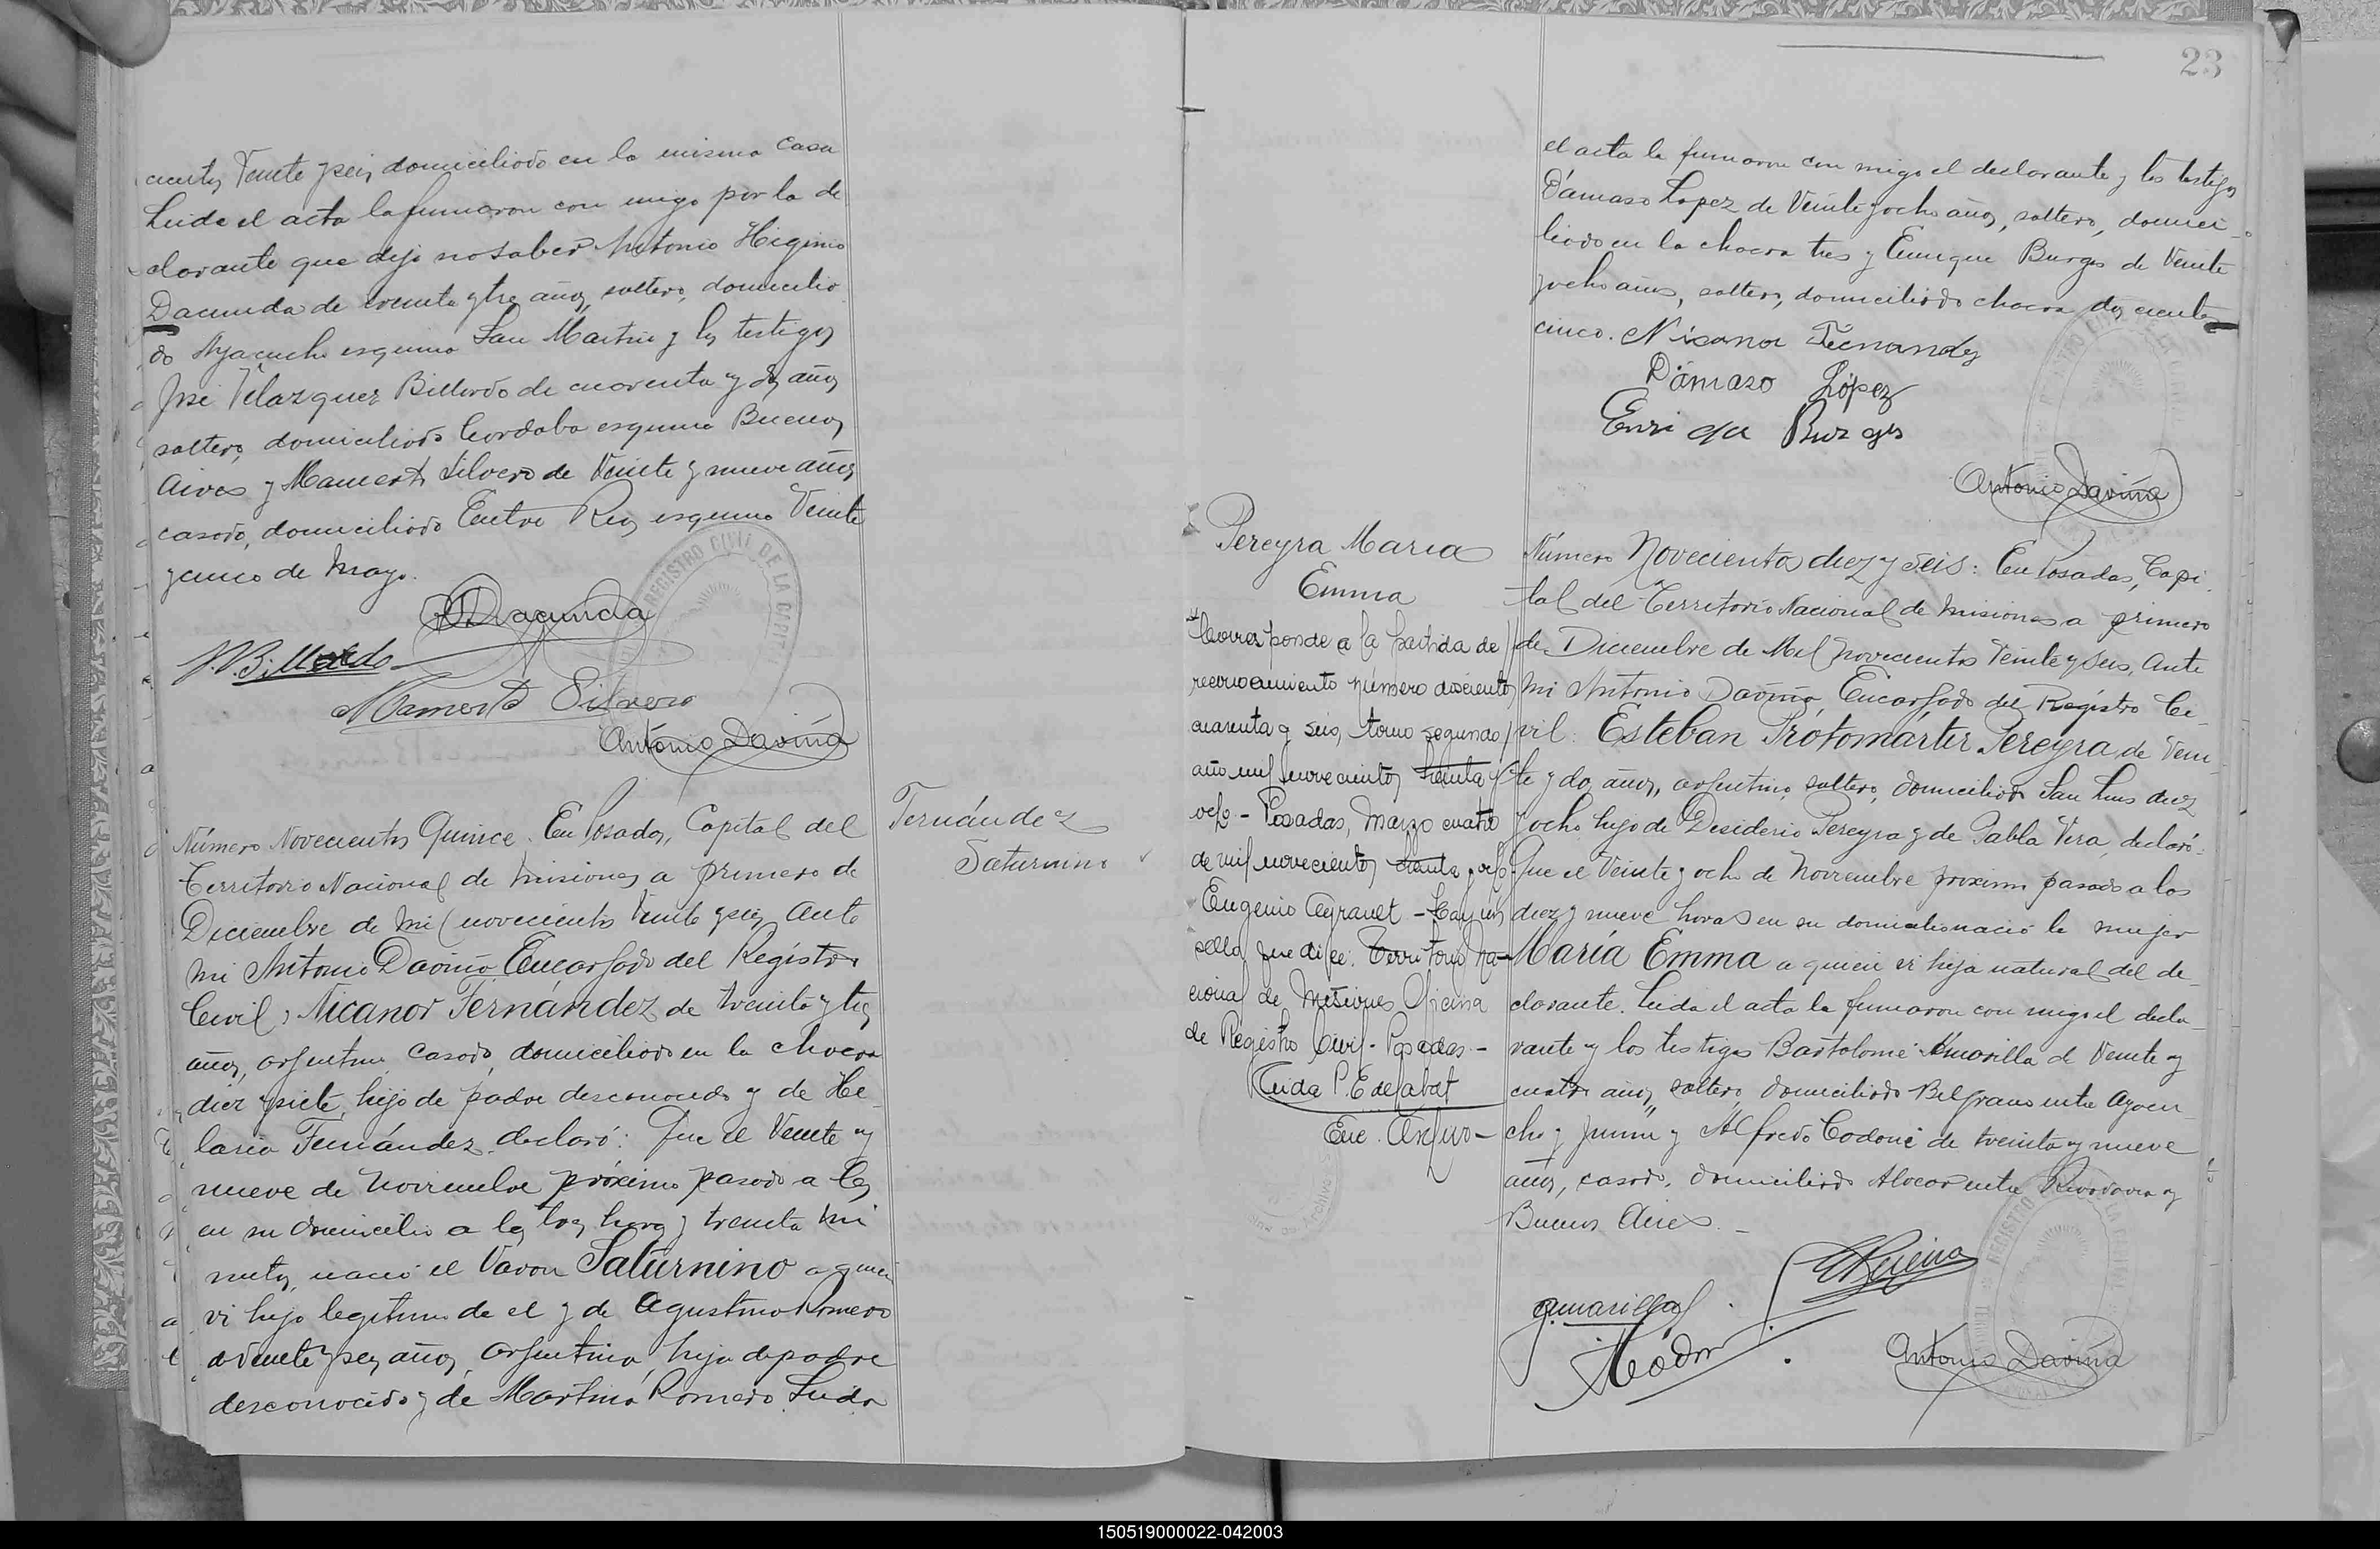 cientos Veinte y seis domiciliado en la misma casa
Leida el acta la firmaron con migo por la de
clarante que dijo no saber Antonio Higinio
Dacunda de treinta y tres años, soltero, domicilia
do Ayacucho esquina San Martin y los testigos
José Velazquez Billordo de cuarenta y dos años
soltero, domiciliado Cordoba esquina Buenos
Aires y Mamerto Silvero de Veinte y nueve años
casado, domiciliado Entre Rios esquina Veinte
y cinco de Mayo.
Dacunda
J. V. Billordo
Mamerto Silvero
Antonio Daviña
REGISTRO CIVIL DE LA
Número Novecientos Quince. En Posadas, Capital del
Territorio Nacional de Misiones a primero de
Diciembre de Mil novecientos Veinte y seis, Ante
mi Antonio Daviña Encargado del Registro
Civil, Nicanor Fernández de treinta y tres
años, argentino, casado, domiciliado en la chacra
diez y siete, hijo de padre desconocido y de He
laria Fernández, declaró: Que el Veinte y
nueve de Noviembre próximo pasado a las
en su domicilio a las tres horas y treinta mi
nutos, nació el Varon Saturnino a quien
vi hijo legitimo de el y de Agustina Romero
de Veinte y seis años, argentina, hija de padre
desconocido y de Martina Romero. Leida
Fernández
Saturnino
23
el acta la firmaron con migo el declarante y los testigos
Dámaso Lopez de Veinte y ocho años, soltero, domici-
liado en la chacra tres y Enrique Burgos de Veinte
y ocho años, soltero, domiciliado chacra dos cientos
cinco. Nicanor Fernandez
Dámaso López
Enrique Burgos
Antonio Daviña
Pereyra Maria
Emma
Corresponde a la partida de
reconocimiento número doscientos
cuarenta y seis, tomo segundo
año mil novecientos treinta y
ocho - Posadas, Marzo cuatro
de mil novecientos treinta y ocho
Eugenio Ayranet - Hay un
sello que dice: Territorio Na-
cional de Misiones Oficina
de Registro Civil - Posadas -
Enc. Archivo -
Número Novecientos diez y seis: En Posadas, Capi
tal del Territorio Nacional de Misiones a primero
de Diciembre de Mil novecientos Veinte y seis, Ante
mi Antonio Daviña, Encargado del Registro Ci-
vil: Esteban Protomártir Pereyra, de Vein-
te y dos años, argentino, soltero, domiciliado San Luis diez
y ocho hijo de Desiderio Pereyra y de Pabla Vera, declaró:
Que el Veinte y ocho de Noviembre proximo pasado a las
diez y nueve horas en su domicilio nació la mujer
María Emma a quien vi hija natural del de-
clarante. Leida el acta la firmaron con migo el decla-
rante y los testigos Bartolomé Amarilla de Veinte y
cuatro años, soltero, domiciliado Belgrano entre Ayacu-
cho y Junin y Alfredo Codoni de treinta y nueve
años, casado, domiciliado Alvear entre Rivadavia y
Buenos Aires. -
EPereira
Amarilla
Antonio Daviña
150519000022-042003